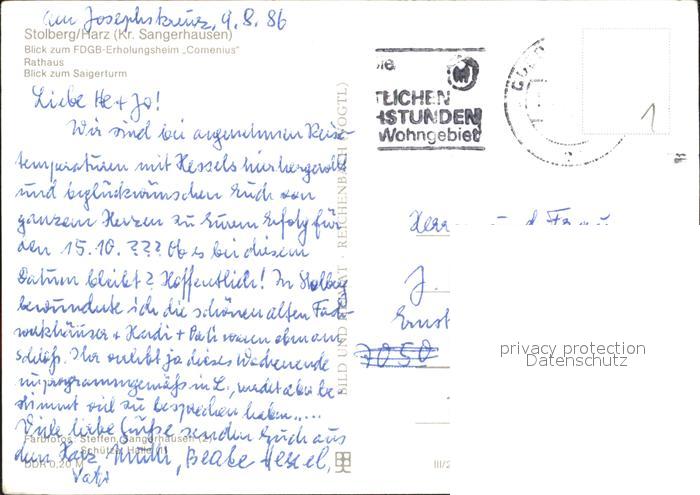 am Josephskreuz, 9.8.86
Stolberg/Harz (Kr. Sangerhausen)
Blick zum FDGB-Erholungsheim „Comenius"
Rathaus
Blick zum Saigerturm
Liebe He + Jo!
Wir sind bei angenehmen Reise-
temperaturen mit Hessels hierhergerollt
und beglückwünschen Euch von
ganzem Herzen zu Eurem Erfolg für
den 15.10. ??? Ob es bei diesem
Datum bleibt? Hoffentlich! In Stolberg
bewunderte ich die schönen alten Fach-
werkhäuser + Heidi + Vati waren oben am
Schloß. Ihr erlebt ja dieses Wochenende
in L., werdet aber be-
stimmt viel zu besprechen haben.....
Viele liebe Grüße senden Euch aus
dem Harz Mutti, Beate Hessel,
Vati
Farbfotos: Steffen, Sangerhausen (2)
DDR 0,20 M
BILD UND HEIMAT · REICHENBACH (VOGTL)
III/2
TLICHEN
HSTUNDEN
Wohngebiet
1
Herrn und Frau
J.
Ernst
7050
privacy protection
Datenschutz